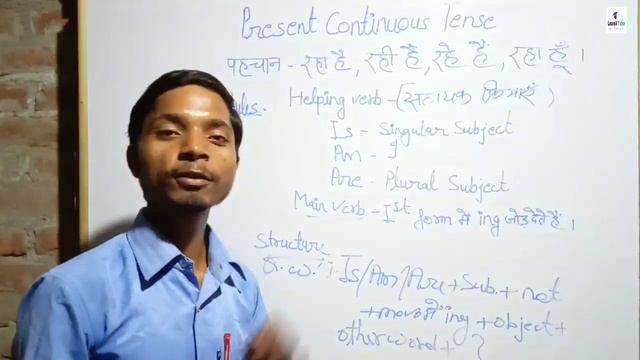 Present Continuous Tense
पहचान - रहा है, रही है, रहे हैं, रहा हूँ।
Rules. Helping verb - (सहायक क्रियाएं)
Is - Singular Subject
Am - I
Are - Plural Subject
Main verb - Ist form में ing जोड़ देते हैं।
Structure
Is/Am/Are + Sub. + not
+ ing + object +
other word + ?